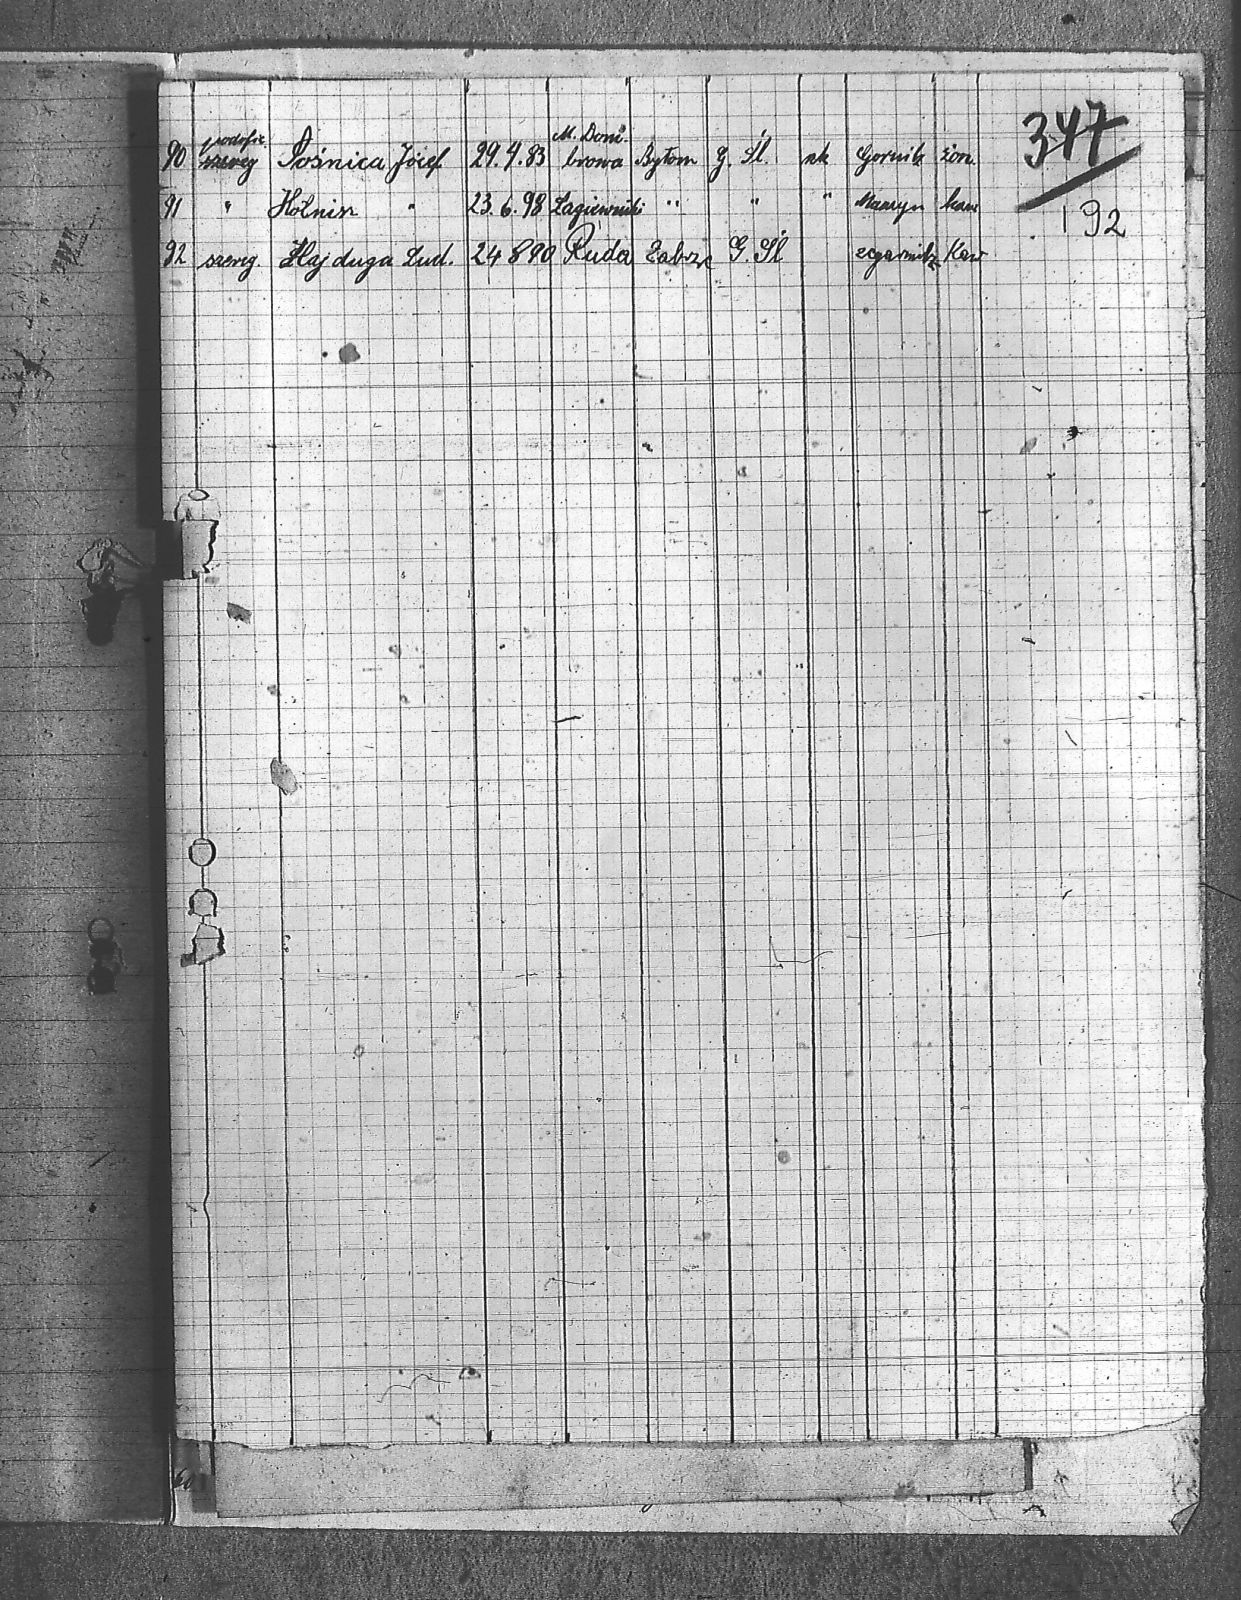 347
podofic. M. Dom
90 szereg Pośnica Józef 29.4.83 browa Bytom G. Śl. rk Gornik żon.
91 " Holnisz " 23.6.98 Łagiewniki " " " Maszyn kaw
192
92 szereg. Hajduga Lud. 24 8 90 Ruda Zabrze G. Śl zegarmistrz Kaw